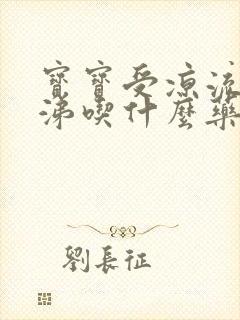 寶寶受凉流鼻
涕喫什麼藥
劉長征